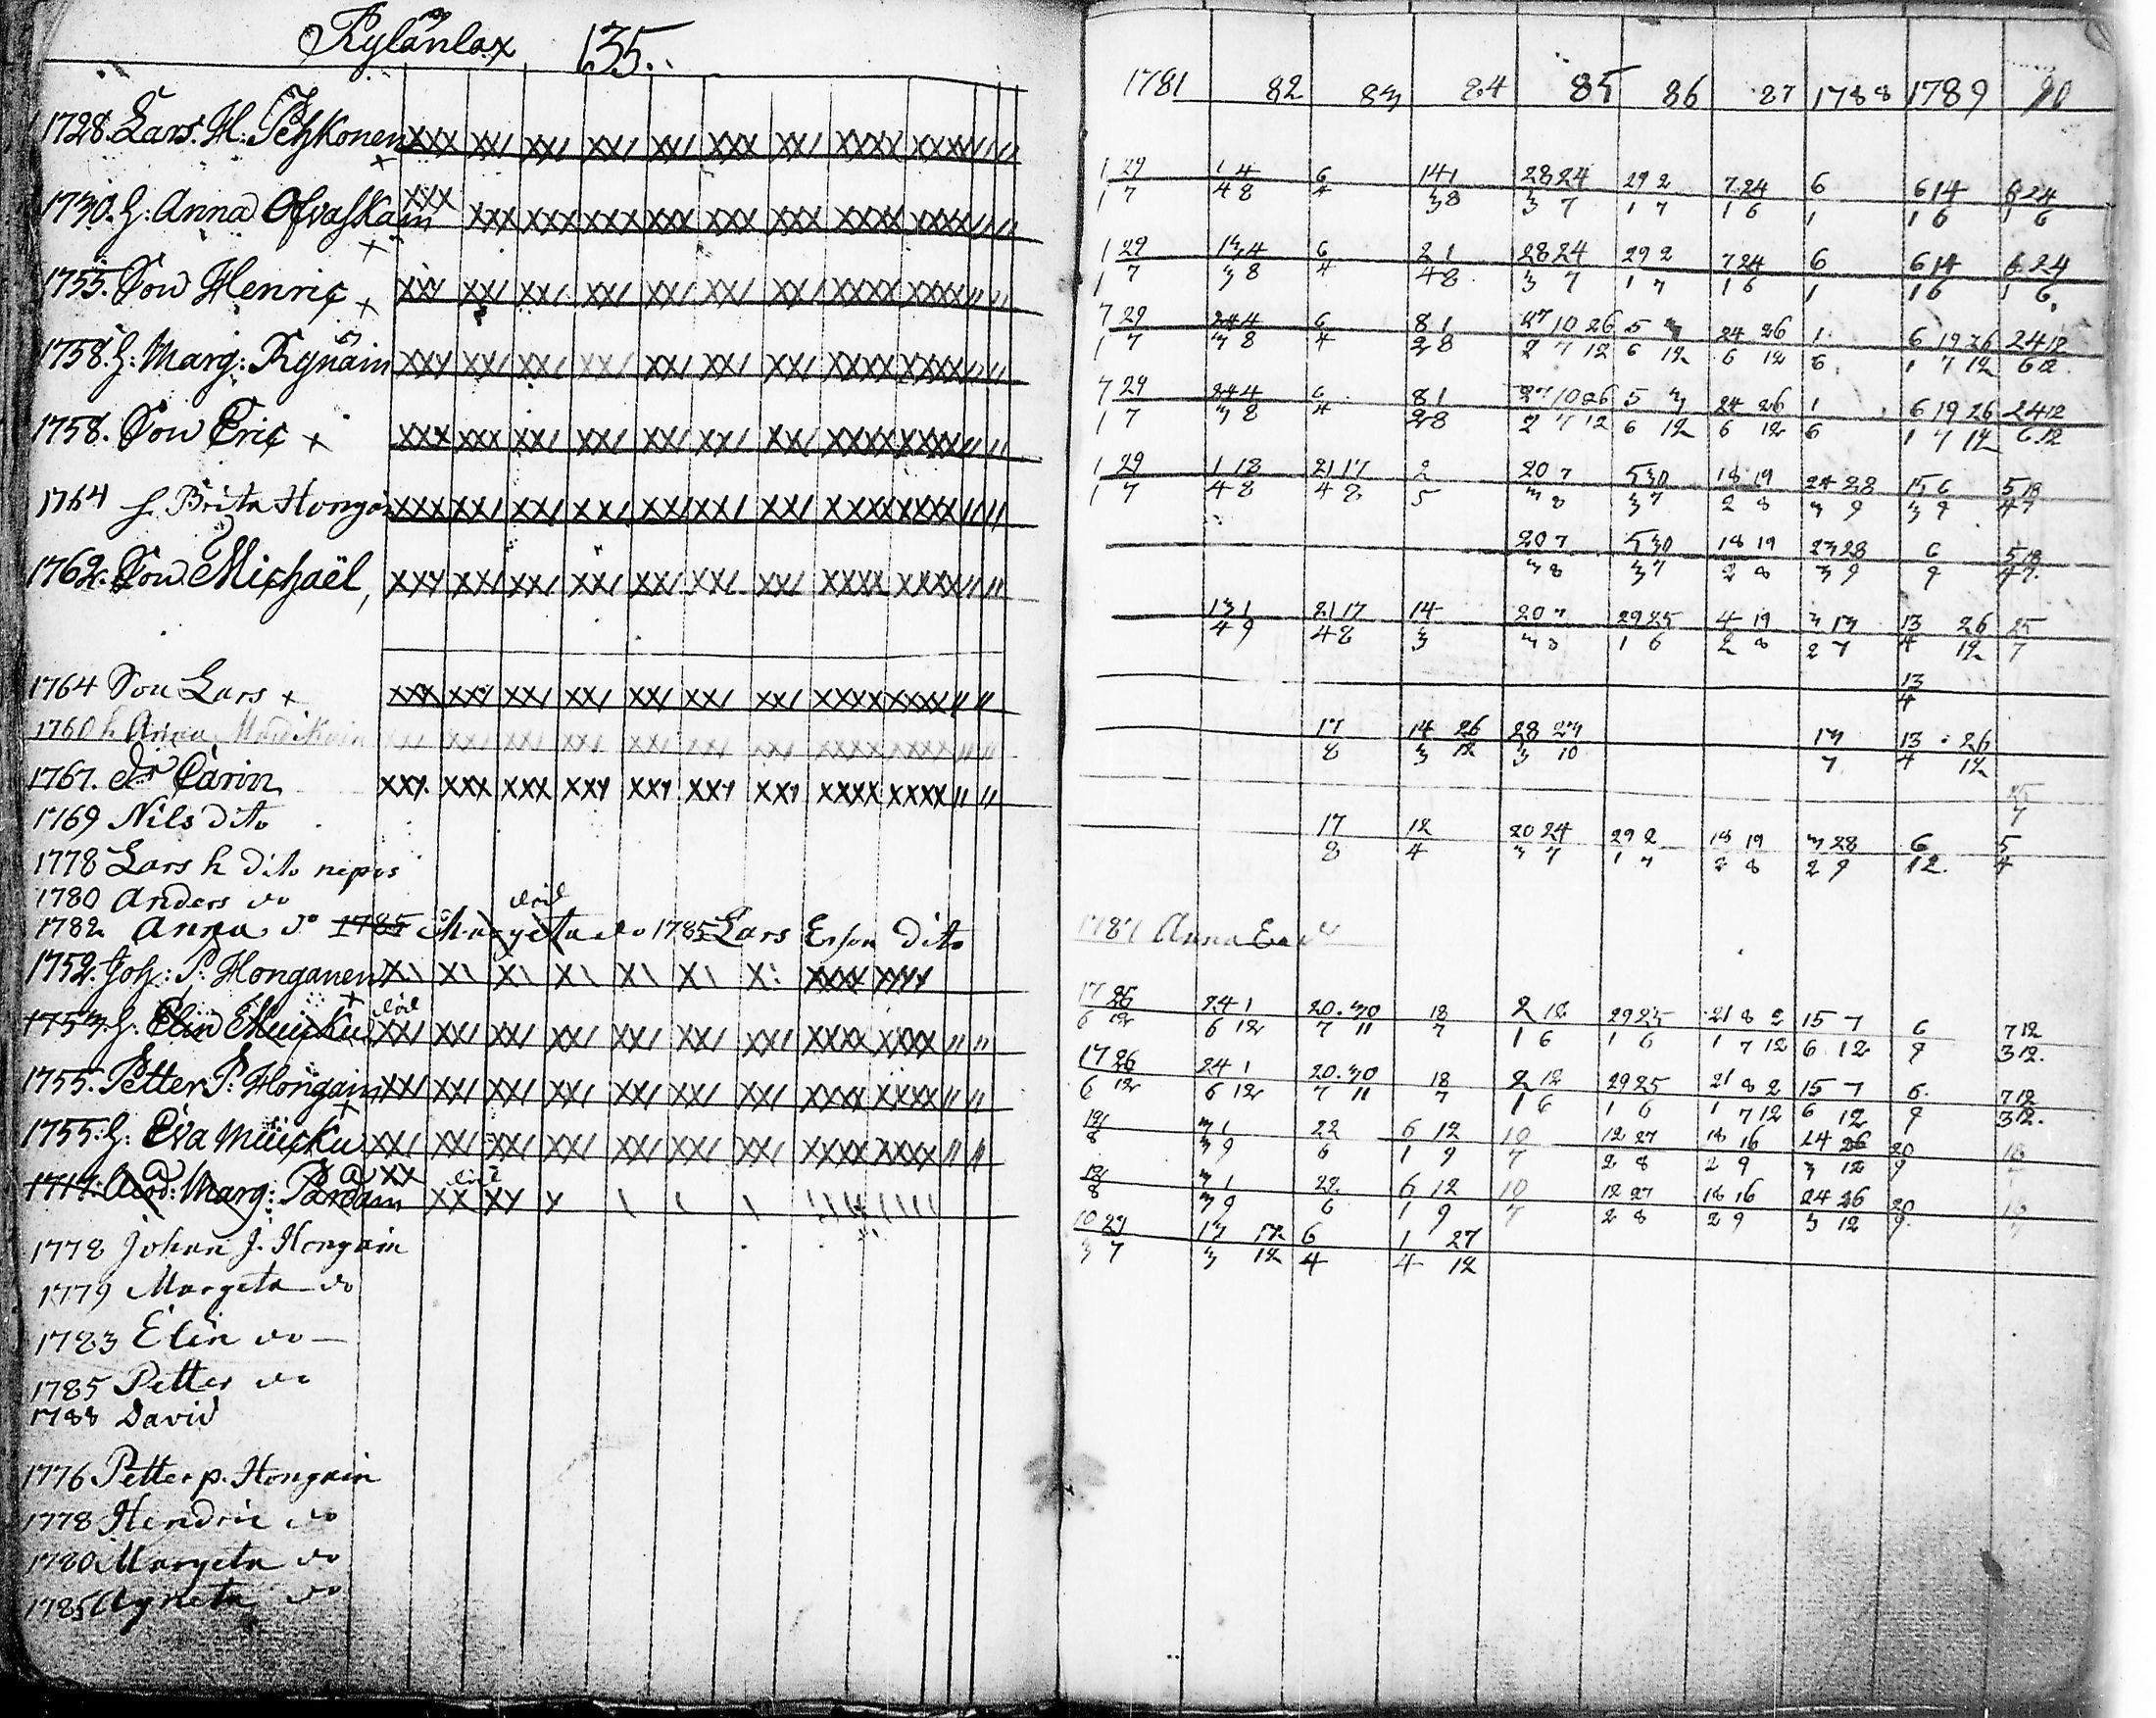 Kylänlax 135.
1728. Lars. H: Peskonen
1730. H: Anna Ofvaskain
1755. Son Henric
1758. H: Marg: Kynäin
1758. Son Eric
1764 h Brita Hongain
1762. Son Michaël,
1764 Son Lars
1760 h Anna
1767. dr Carin
1769 Nils dito
1778 Lars h dito nepos
1780 Anders do
död
1782 Anna do 1785 Margeta do 1785 Lars Erson dito
1752. Joh: P: Honganen
död
1753. H: Elin Muicku
1755. Petter P: Hongain
1755. H: Eva Muicku
död
1717. Marg: Pardain
1778 Johan J. Hongain
1779 Margeta do
1783 Elin do
1785 Petter do
1788 David
1776 Petter p. Hongain
1778 Hendric do
1780 Margeta do
1785 Agneta do
1781 82 83 84 85 86 87 1788 1789 90
1 29 1 4 6 14 1 28 24 29 2 7 24 6 6 14 6 24
1 7 4 8 4 3 8 3 7 1 7 1 6 1 1 6 1 6
1 29 13 4 6 2 1 28 24 29 2 7 24 6 6 14 6 24
1 7 3 8 4 4 8 3 7 1 7 1 6 1 1 6 1 6
7 29 24 4 6 8 1 27 10 26 5 3 24 26 1 6 19 26 24 12
1 7 3 8 4 2 8 2 7 12 6 12 6 12 6 1 7 12 6 12
7 29 24 4 6 8 1 27 10 26 5 3 24 26 1 6 19 26 24 12
1 7 3 8 4 2 8 2 7 12 6 12 6 12 6 1 7 12 6 12
1 29 1 18 21 17 2 20 7 5 30 18 19 24 28 15 6 5 18
1 7 4 8 4 8 5 3 8 3 7 2 8 3 9 3 9 4 7
20 7 5 30 18 19 23 28 6 5 18
3 8 3 7 2 8 3 9 9 4 7
13 1 21 17 14 20 7 29 25 4 19 3 13 13 26 25
4 9 4 8 3 3 8 1 6 2 8 2 7 4 12 7
13
4
17 14 26 28 23 13 13 26
8 3 12 3 10 7 4 12
25
7
17 12 20 24 29 2 18 19 3 28 6 5
8 4 3 7 1 7 2 8 2 9 12 4
1787 Anna
17 26 24 1 20. 30 18 2 12 29 25 21 8 2 15 7 6 7 12
6 12 6 12 7 11 7 1 6 1 6 1 7 12 6 12 9 3 12.
17 26 24 1 20. 30 18 2 12 29 25 21 8 2 15 7 6 7 12
6 12 6 12 7 11 7 1 6 1 6 1 7 12 6 12 9 3 12.
12 3 1 22 6 12 10 12 27 18 16 24 26 20 18
8 3 9 6 1 9 7 2 8 2 9 3 12 9
12 3 1 22 6 12 10 12 27 18 16 24 26 20 18
8 3 9 6 1 9 7 2 8 2 9 3 12 9
10 23 13 12 6 1 27
3 7 3 12 4 4 12